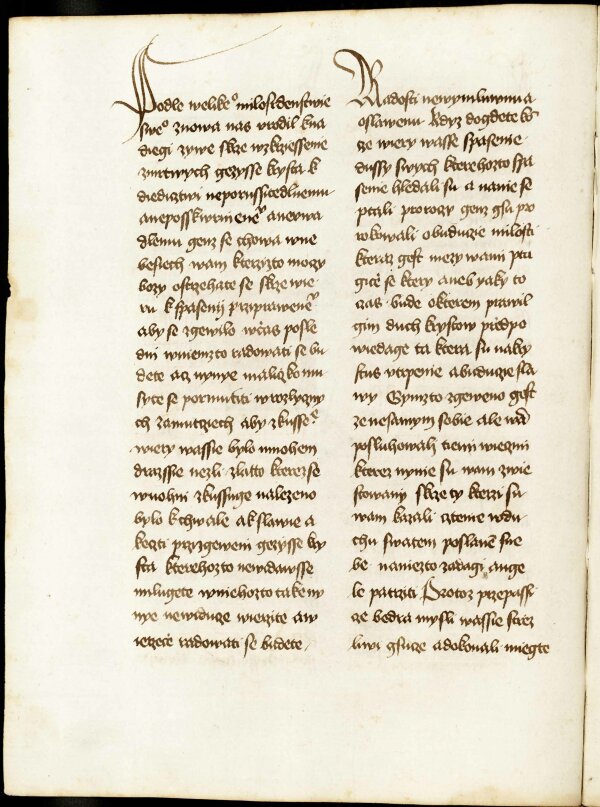 Podle welikeº milosrdenstwie
sweº znowa nas vrodil kna
diegi zywe skrze wzkrziessenie
zmrtwych gezysse krysta k
diedicztwi neporussitedlnemu
aneposskwrnieneº anevwa
dlemu genz se chowa wne
besiech wam kterzyzto mozy
bozy ostrzehate se skrze wie
ru k spaseni prziprawenéº
aby se zgewilo wczas posle
dni wniemzto radowati se bu
dete acz nynye maliczko mu
syte se pormutiti wrozlyczny
ch zamutciech aby zkusseº
wiery wassie bylo mnohem
drazssie nezli zlatto kterez se
wuohni zkussuge nalezeno
bylo kchwale akslawie a
kczti przi zgeweni gezysse kry
sta kterehozto newidawsse
milugete wniehozto take ny
nye newiduze wierzite aw
ierzece radowati se budete
Radosti newymluwnu a
oslawenu kdyz dogdete ko
ze wiery wasse spasenie
dussy swych kterehozto spa
senie hledali su a nanie se
ptali prorozy genz gsu pro
rokowali obuduzie milosti
kteraz gest mezy wami pta
giće se ktery aneb yaky to
czas bude okterem prawil
gim duch krystow przedpo
wiedage ta ktera su nakry
stus vtrpenie abuduzie sla
wy Gymzto zgeweno gest
ze nesamym sobie ale wá
posluhowali tiemi wiezmi
kterez nynie su wam zwie
stowany skrze ty kterzi su
wam kazali cztenie wdu
chu swatem poslané sne
be nanizto zadagi ange
le patrziti Protoz przepassi
ze bedra mysli wassie strzez
liwi gsuze adokonali miegte